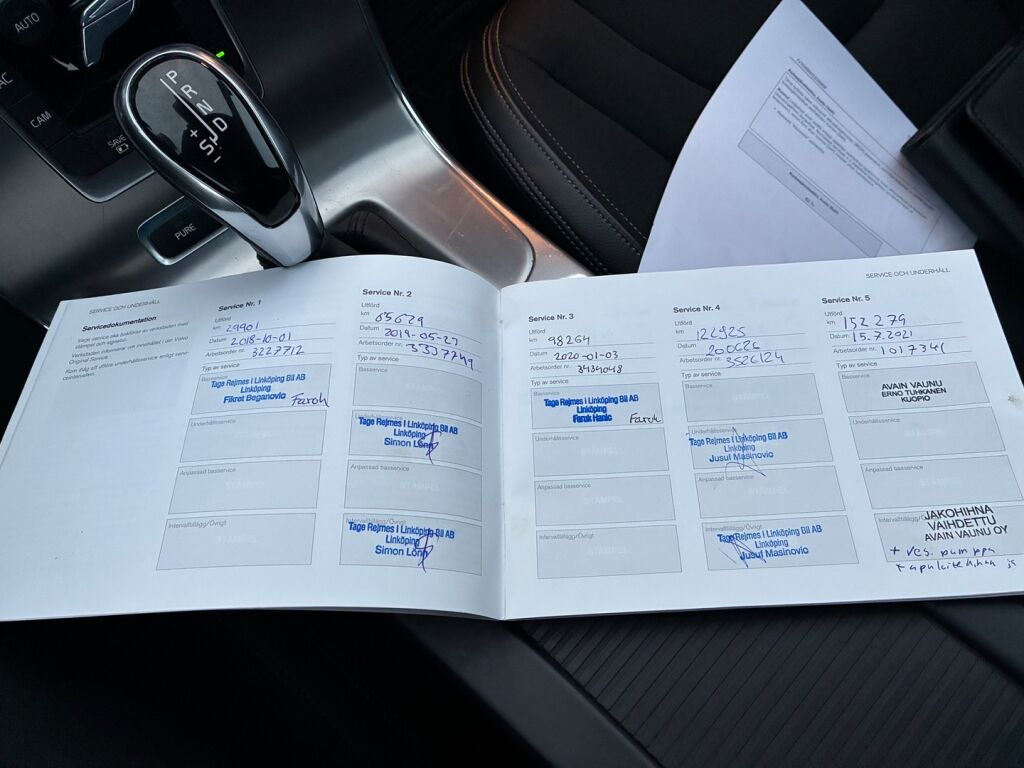 AUTO
AC
CAM
SAVE
P
R
N
D
+
S
−
PURE
SERVICE OCH UNDERHÅLL
Servicedokumentation
Varje service ska bekräftas av verkstaden med stämpel och signatur.
Original Service.
Service Nr. 1
Utförd
km 29901
Datum 2018-10-01
Arbetsorder nr. 3227712
Typ av service
Basservice
Tage Rejmes i Linköping Bil AB
Linköping
Fikret Beganovic Faruk
Underhållsservice
Anpassad basservice
STÄMPEL
Intervalltillägg/Övrigt
STÄMPEL
Service Nr. 2
Utförd
km 65629
Datum 2019-05-27
Arbetsorder nr.
Typ av service
Basservice
STÄMPEL
Underhållsservice
Tage Rejmes i Linköping Bil AB
Linköping
Simon Lönn
Anpassad basservice
STÄMPEL
Intervalltillägg/Övrigt
Tage Rejmes i Linköping Bil AB
Linköping
Simon Lönn
Service Nr. 3
Utförd
km 98264
Datum 2020-01-03
Arbetsorder nr. 3434048
Typ av service
Basservice
Tage Rejmes i Linköping Bil AB
Linköping
Faruk Hanic Faruk
Underhållsservice
STÄMPEL
Anpassad basservice
STÄMPEL
Intervalltillägg/Övrigt
STÄMPEL
Service Nr. 4
Utförd
km
Datum 200626
Arbetsorder nr. 3526124
Typ av service
Basservice
STÄMPEL
Underhållsservice
Tage Rejmes i Linköping Bil AB
Linköping
Jusuf Masinovic
Anpassad basservice
STÄMPEL
Intervalltillägg/Övrigt
Tage Rejmes i Linköping Bil AB
Linköping
Jusuf Masinovic
SERVICE OCH UNDERHÅLL
Service Nr. 5
Utförd
km 152279
Datum 15.7.2021
Arbetsorder nr. 1017341
Typ av service
Basservice
AVAIN VAUNU
ERNO TUHKANEN
KUOPIO
Underhållsservice
STÄMPEL
Anpassad basservice
STÄMPEL
Intervalltillägg/Övrigt
JAKOHIHNA
VAIHDETTU
AVAIN VAUNU OY
+ ves. pumppu
+ apulaitehihna ja